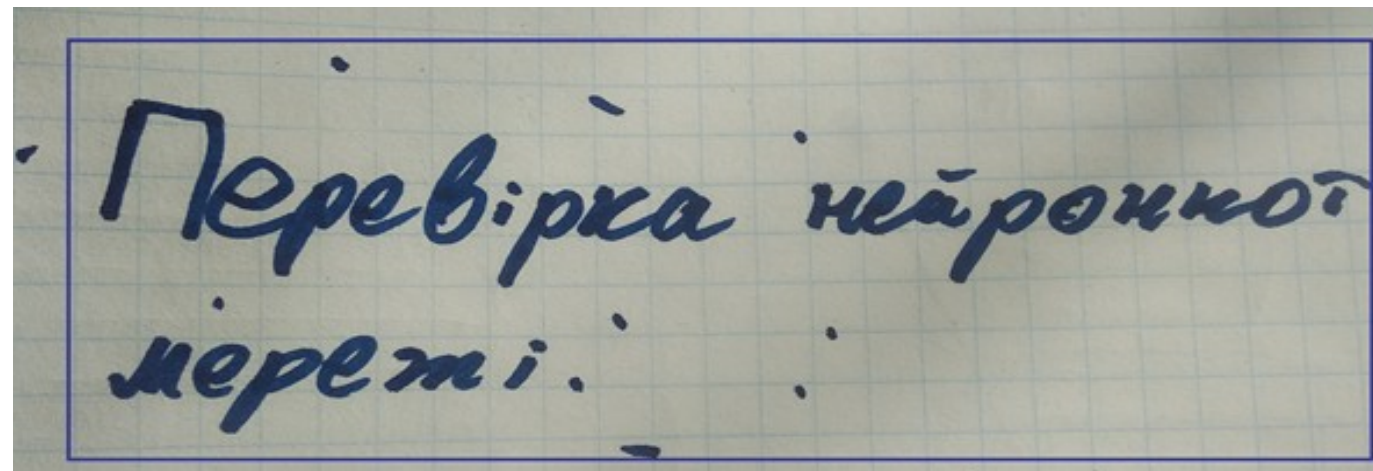 Перевірка нейронної
мережі.